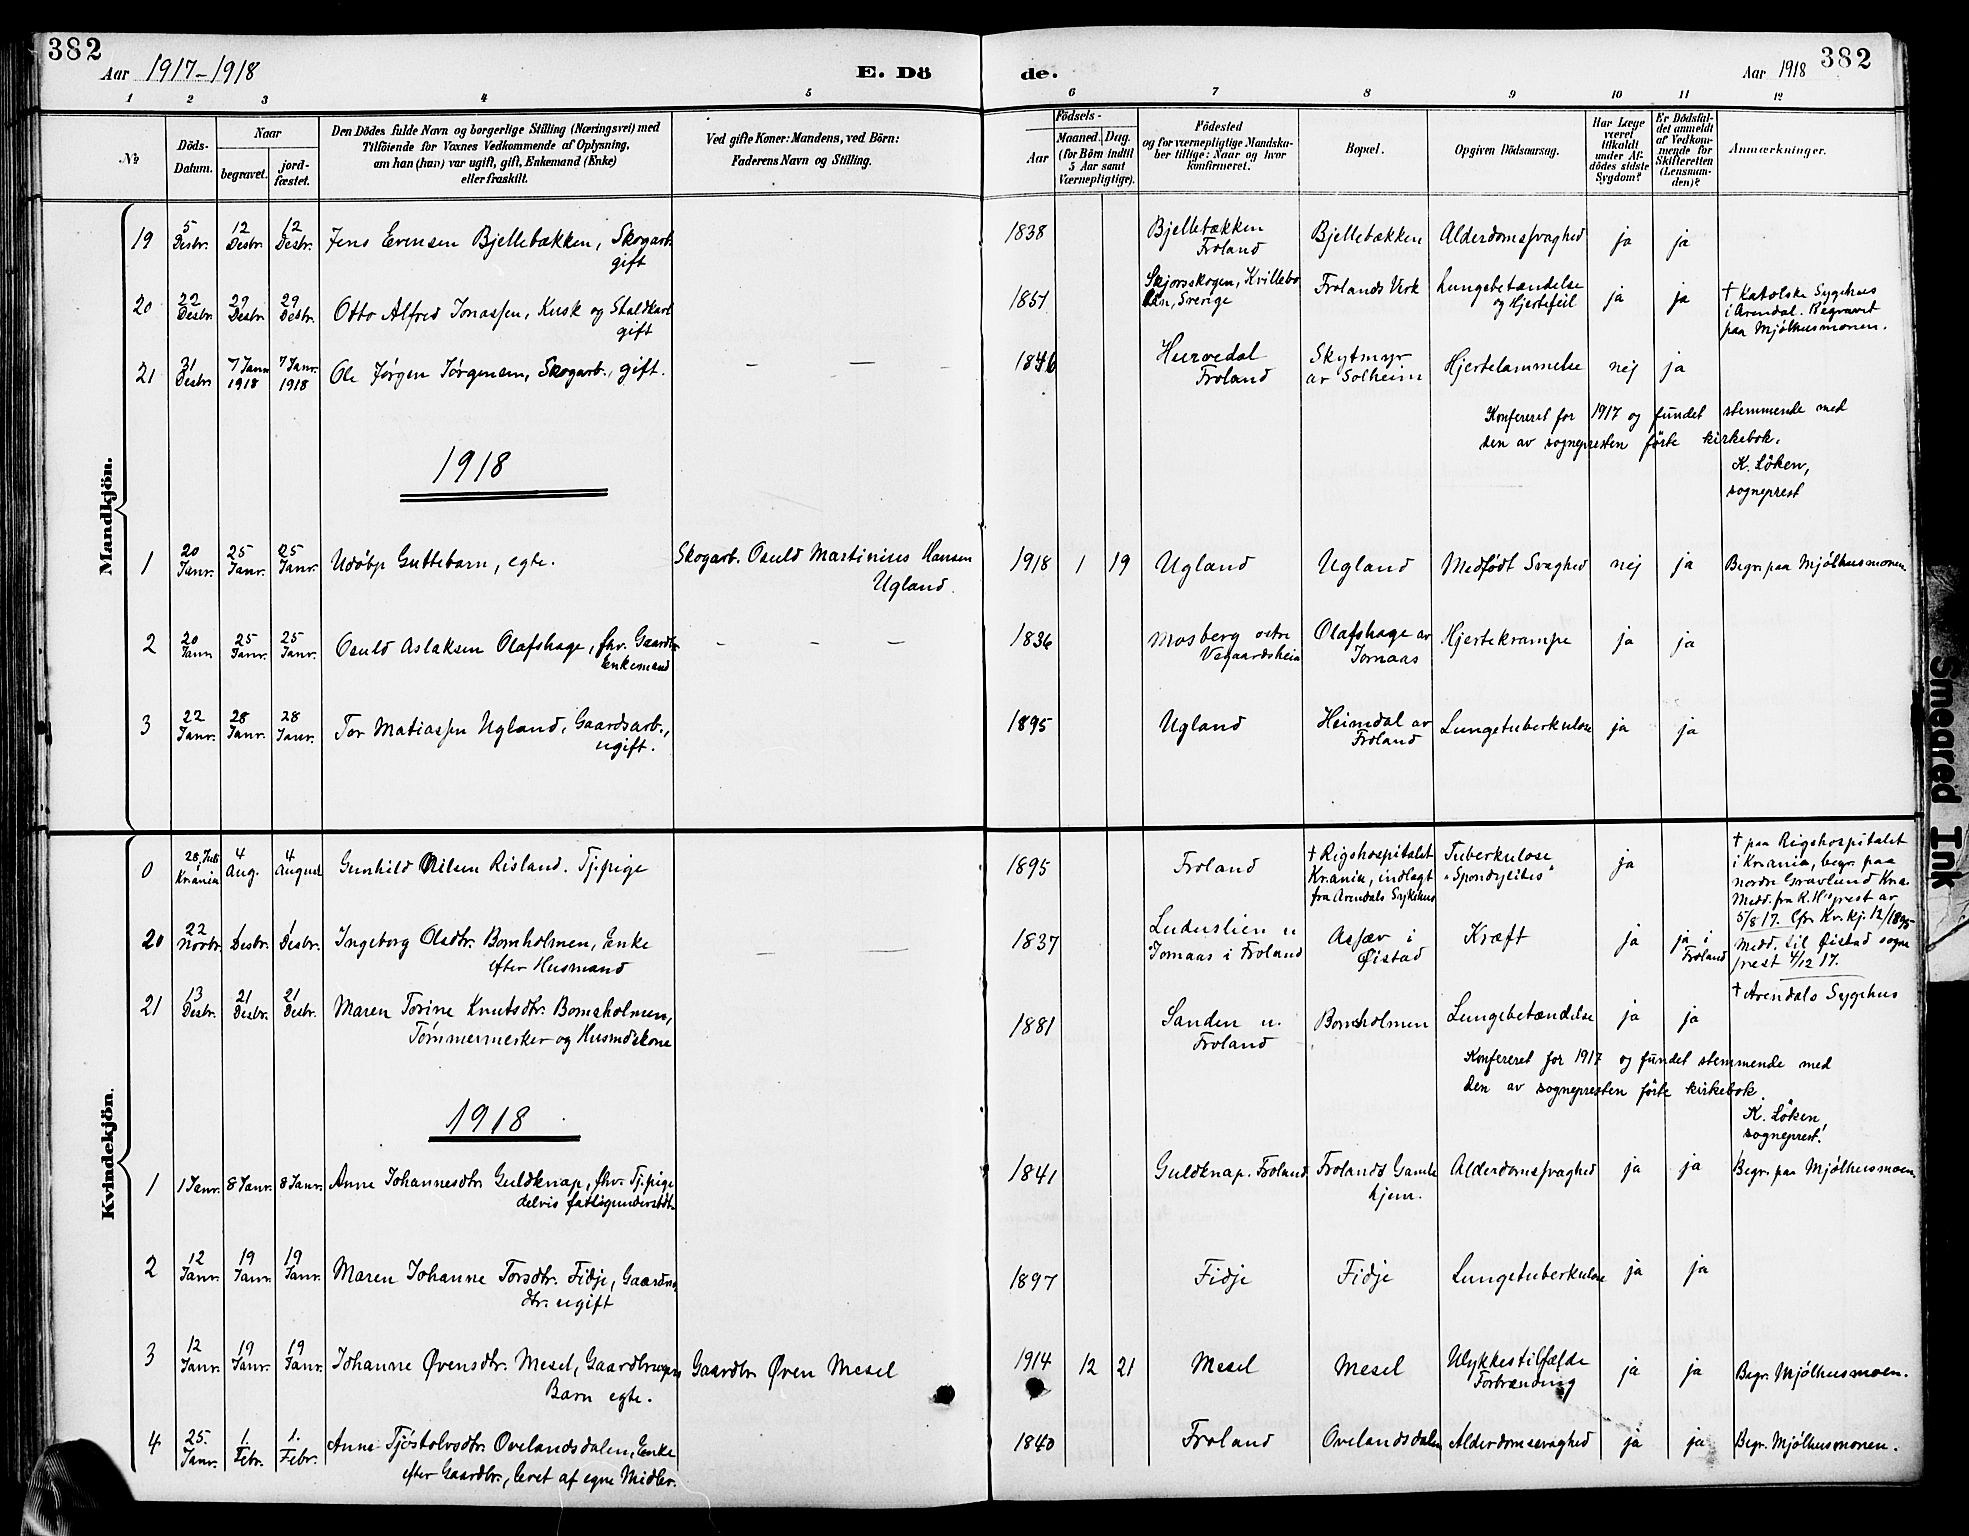 382
Aar 1917-1918
E. Dö
de.
Aar 1918
382
1 2 3 4 5 6 7 8 9 10 11 12
No
Döds-
Datum.
Naar
begravet.
jord-
fæstet.
Den Dödes fulde Navn og borgerlige Stilling (Næringsvei) med
Tilföiende for Voxnes Vedkommende af Oplysning,
om han (hun) var ugift, gift, Enkemand (Enke)
eller fraskilt.
Ved gifte Koner: Mandens, ved Börn:
Faderens Navn og Stilling.
Födsels-
Aar
Maaned. Dag.
(for Börn indtil
5 Aar samt
Værnepligtige).
Födested
og for værnepligtige Mandska-
ber tillige: Naar og hvor
konfirmeret.
Bopæl.
Opgiven Dödsaarsag.
Har Læge
været
tilkaldt
under Af-
dödes sidste
Sygdom?
Er Dödsfal-
det anmeldt
af Vedkom-
mende for
Skifteretten
(Lensman-
den)?
Anmærkninger.
Mandkjön.
19 5 Desbr. 12 Desbr. 12 Desbr. Jens Evensen Bjellebækken, Skogarb.
gift
1838 Bjellebækken
Froland
Bjellebækken Alderdomssvaghed ja ja
20 22 Desbr. 29 Desbr. 29 Desbr. Otto Alfred Jonassen, Kusk og Staldkarl
gift
1851 Skjorsskogen, Kvillebo
Sverige
Frolands Verk Lungebetændelse
og Hjertefeil
ja ja
† Katolske Sygehus
i Arendal. Begravet
paa Mjölhusmonen.
21 31 Desbr 7 Janr 1918 7 Janr. 1918 Ole Jörgen Jörgensen, Skogarb., gift. — — —
1846 Hurvedal
Froland
Skytmyr
av Solheim
Hjertelammelse nej ja
Konfereret for 1917 og fundet stemmende med
den av sognepresten förte kirkebok.
K. Löken,
sogneprest
1918
1 20 Janr. 25 Janr. 25 Janr. Udöbt Guttebarn, egte. Skogarb. Osuld Martinius Hansen
Ugland.
1918 1 19 Ugland Ugland Medfödt Svaghed nej ja Begr. paa Mjölhusmonen
2 20 Janr 25 Janr. 25 Janr. Osuld Aslaksen Olafshage, fhv. Gaardbr
Enkemand
— — —
1836 Mosberg östre
Vegaardsheia
Olafshage av
Jomaas
Hjertekrampe ja ja
3 22 Janr. 28 Janr. 28 Janr. Tor Matiassen Ugland, Gaardsarb.,
ugift.
1895 Ugland Heimdal av
Froland
Lungetuberkulose ja ja
Kvindekjön.
0 28. Juli i Krania 4 Aug. 4 August Gunhild Nilsen Risland. Tj.pige
1895 Froland † Rigshospitalet
Krania, indlagt
fra Arendals Sykehus
Tuberkulose
"Spondylites"
ja
† paa Rigshospitalet
i Krania, begr. paa
nordre Gravlund Kra.
Medd. fra R.H's prest av
5/8 17. Cfr. Kv. kj. 12/1895
20 22 Novbr. 1 Desbr. 1 Desbr. Ingeborg Olsdtr. Bornholmen, Enke
efter Husmand
—
1837 Luduslien u
Jomaas i Froland
Asfæv i
Øistad
Kræft ja ja i
Froland
Medd. til Øistad sogne
prest 4/12 17.
21 13 Desbr. 21 Desbr. 21 Desbr. Maren Torine Knutsdtr. Bornsholmen,
Tömmermerker og Husmdskone
1881 Sanden u.
Froland
Bornholmen Lungebetændelse ja ja
† Arendals Sygehus
Konfereret for 1917 og fundet stemmende med
den av sognepresten förte kirkebok.
K. Löken,
sogneprest.
1918
1 1 Janr. 8 Janr. 8 Janr. Anne Johannesdtr. Guldknap, fhv. Tj.pige
delvis fattigunderstöt.
1841 Guldknap. Froland Frolands Gamle
hjem.
Alderdomssvaghed ja ja Begr. paa Mjölhusmoen.
2 12 Janr. 19 Janr. 19 Janr. Maren Johanne Torsdtr. Fidje, Gaardm.
dtr. ugift
1897 Fidje Fidje Lungetuberkulose ja ja
3 12 Janr. 19 Janr. 19 Janr. Johanne Øvensdtr. Mesel, Gaardbrugers
Barn egte.
Gaardbr. Øven Mesel
1914 12 21 Mesel Mesel Ulykkestilfælde
Forbrænding
ja ja Begr. Mjölhusmoen.
4 25. Janr. 1. Febr. 1. Febr. Anne Tjöstolvsdtr. Ovelandsdalen, Enke
efter Gaardbr., levet af egne Midler.
1840 Froland Ovelandsdalen Alderdomssvaghed ja ja Begr. Mjölhusmonen.
Smeared Ink